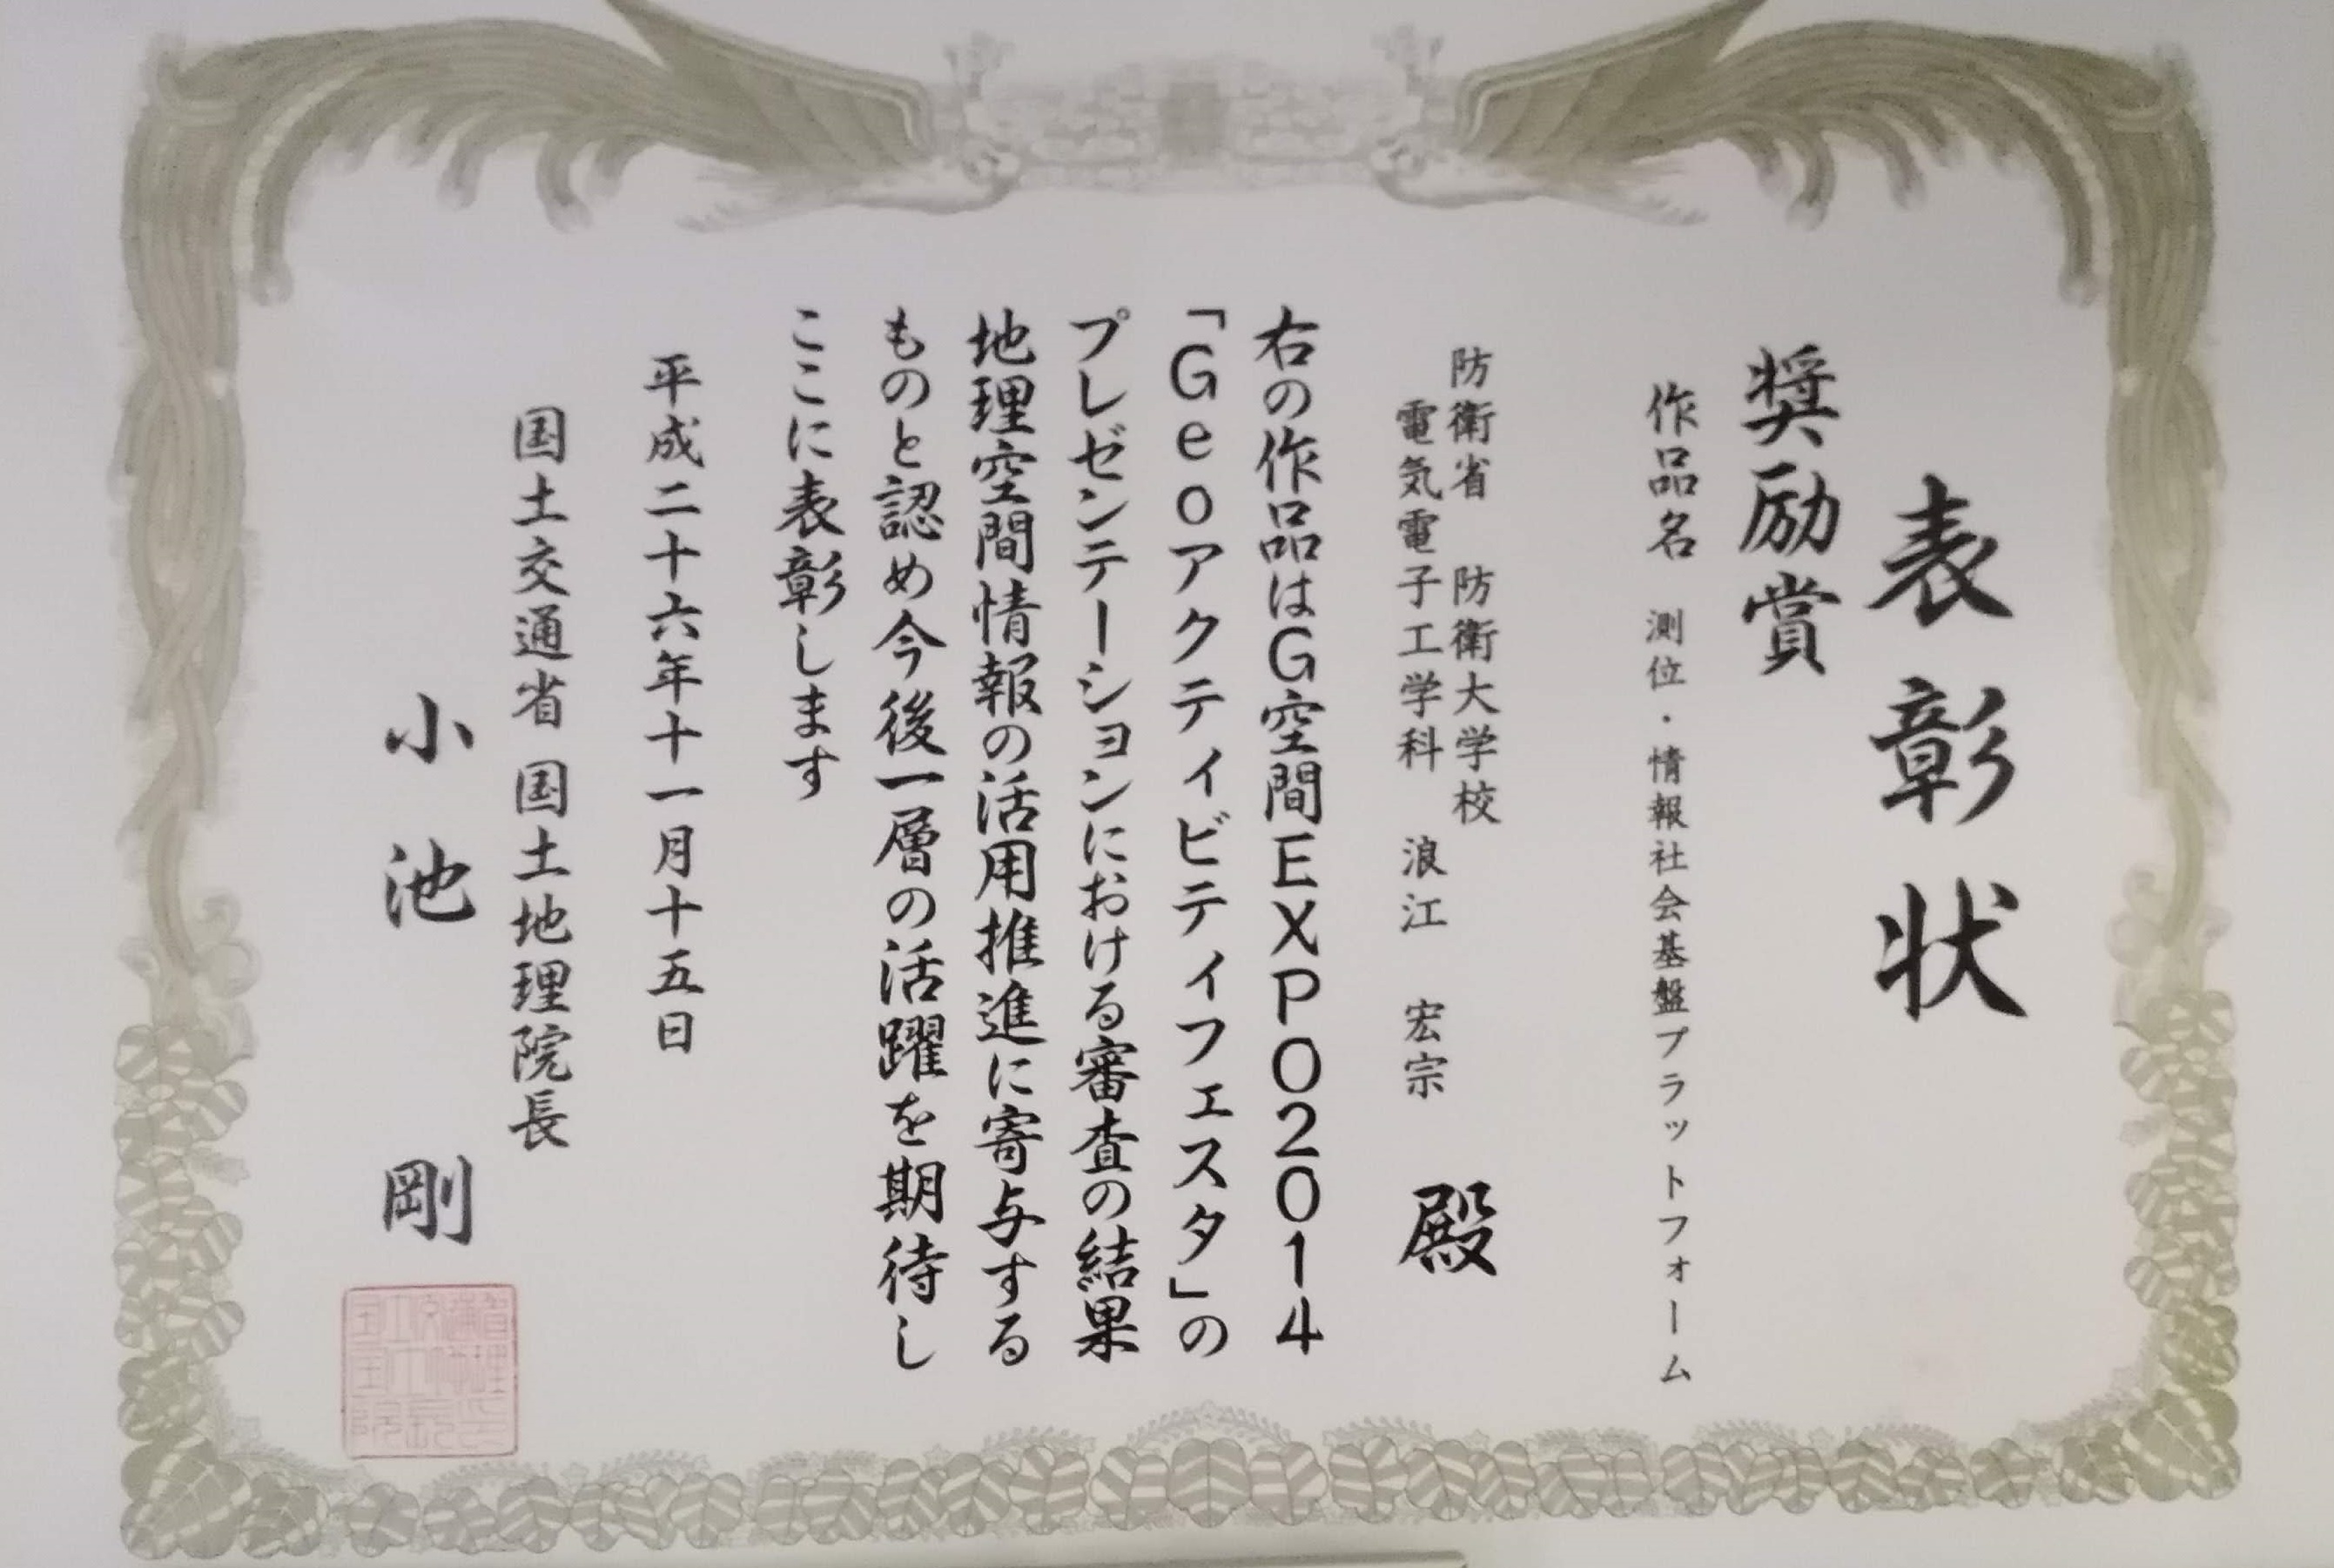 表彰状
奨励賞
作品名 測位・情報社会基盤プラットフォーム
防衛省 防衛大学校
電気電子工学科 浪江 宏宗 殿
右の作品はG空間EXPO2014
「Geoアクティビティフェスタ」の
プレゼンテーションにおける審査の結果
地理空間情報の活用推進に寄与する
ものと認め今後一層の活躍を期待し
ここに表彰します
平成二十六年十一月十五日
国土交通省 国土地理院長
小池 剛